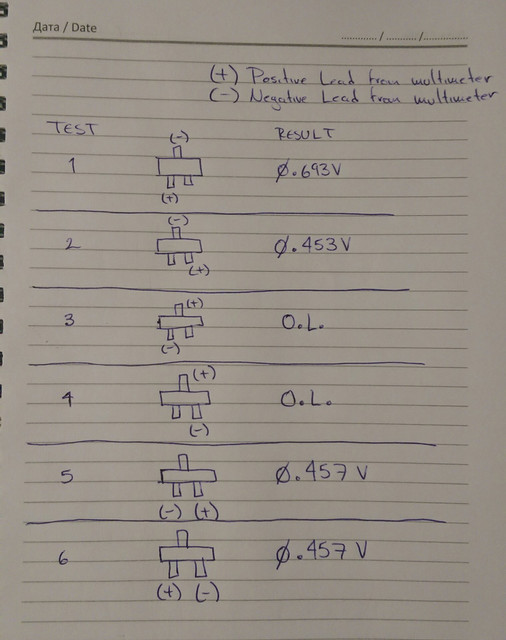 Дата / Date ............ / .......... / ...............
(+) Positive Lead from multimeter
(-) Negative Lead from multimeter
TEST RESULT
(-)
1 0.693V
(+)
(-)
2 0.453V
(+)
(+)
3 O.L.
(-)
(+)
4 O.L.
(-)
5 0.457 V
(-) (+)
6 0.457 V
(+) (-)